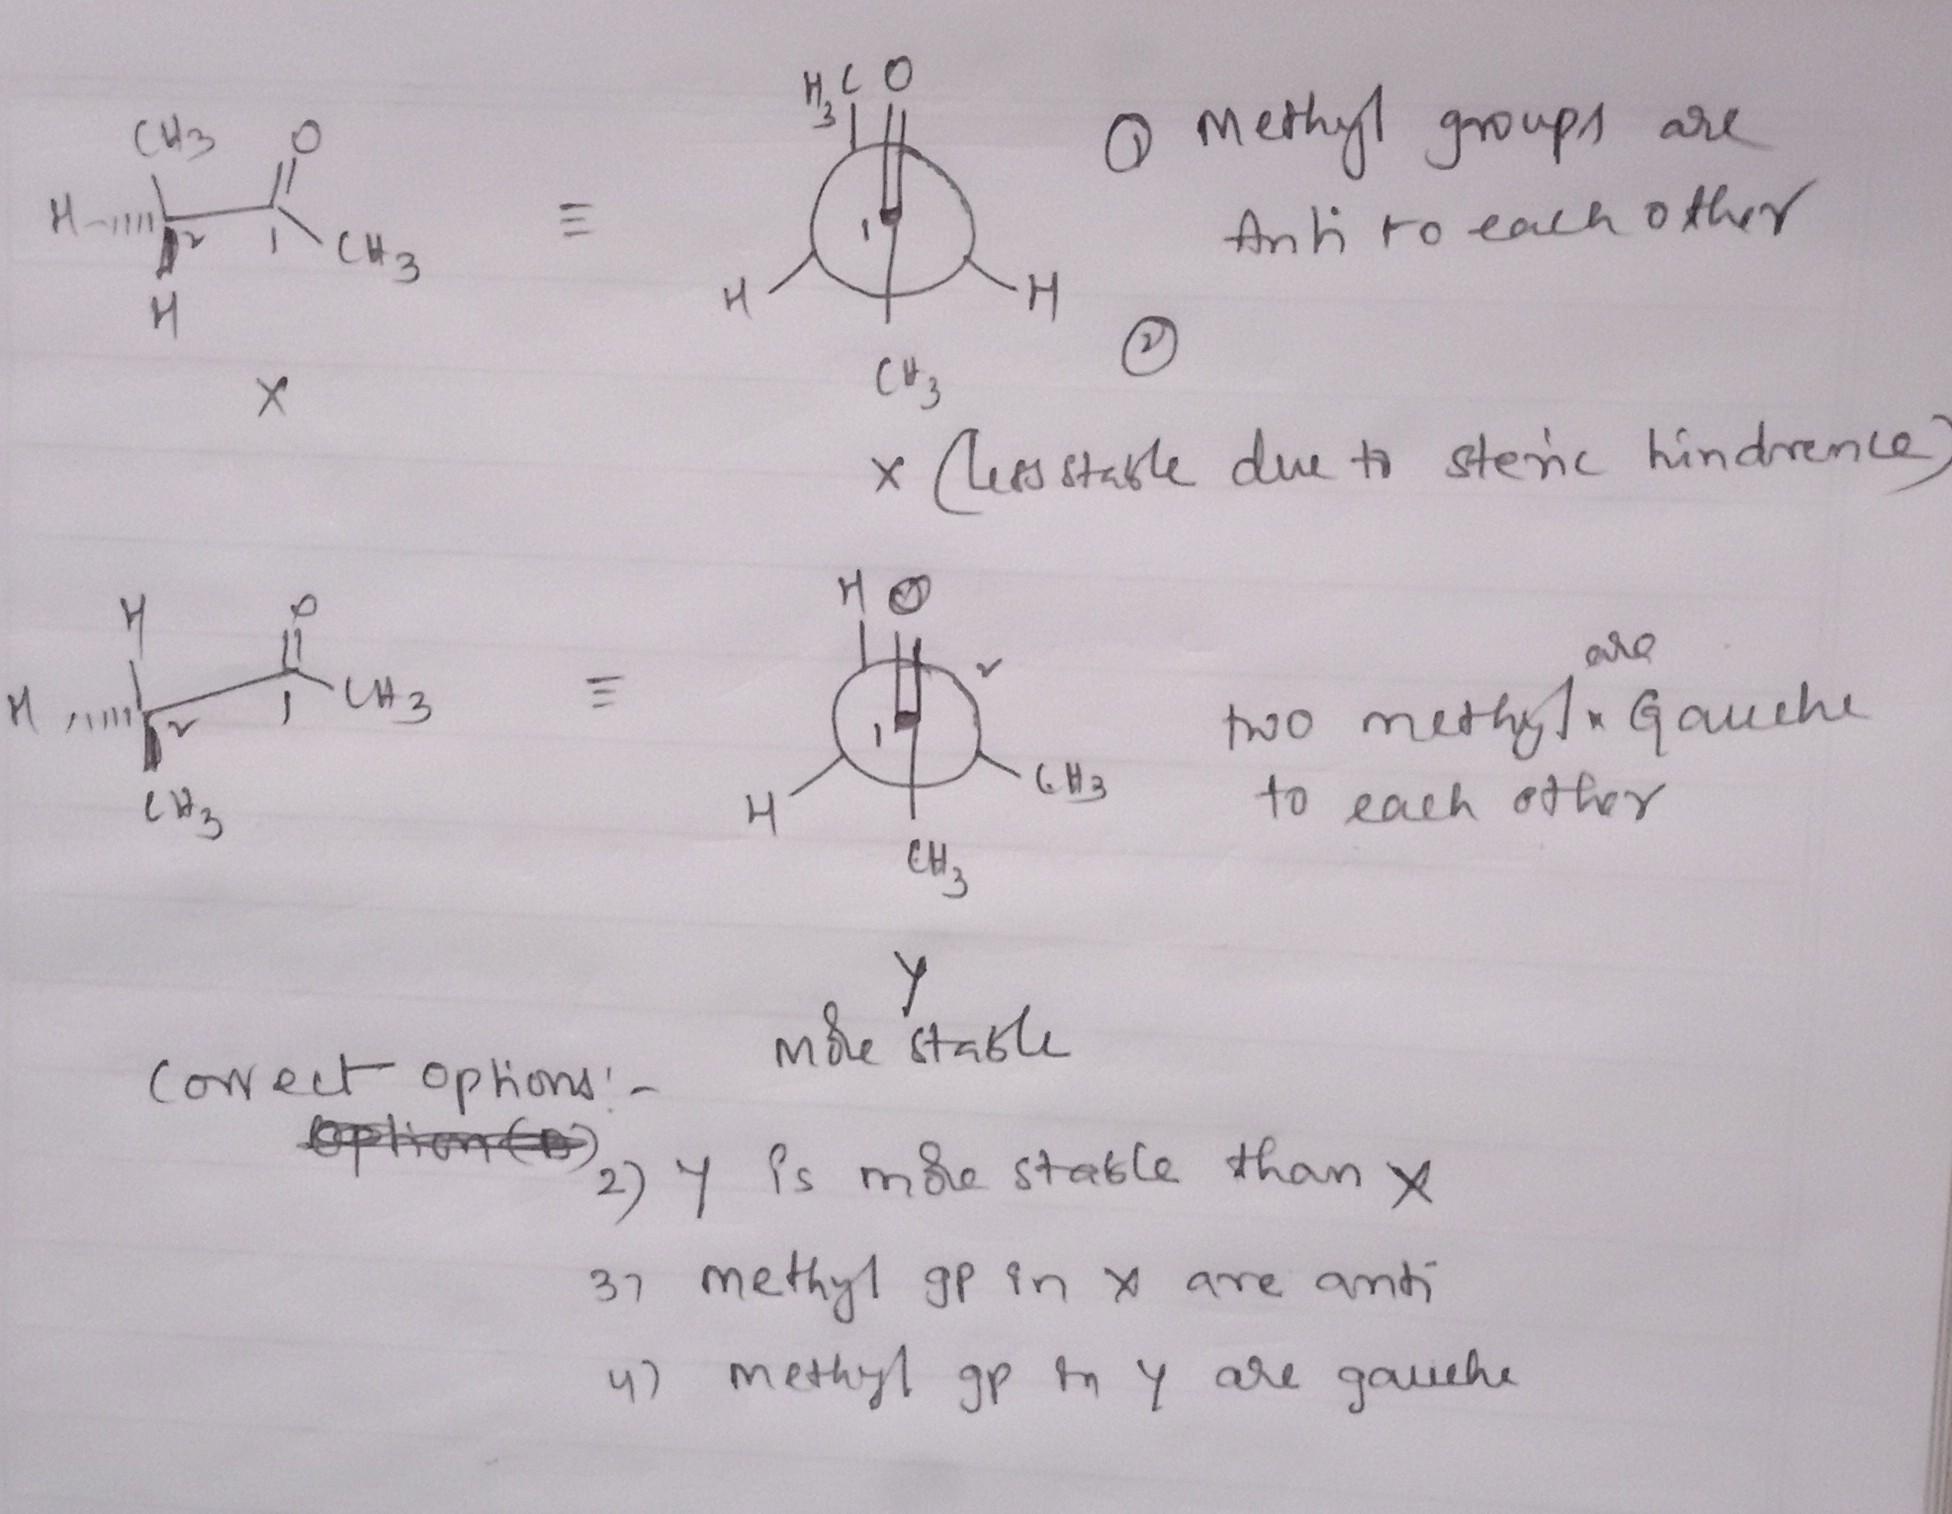 CH3 O
H 2 1 CH3
H
X
≡
H3C O
1
H H
CH3
① Methyl groups are
Anti to each other
②
X (less stable due to steric hindrence)
H O
H 2 1 CH3
CH3
≡
H O
1 2
H CH3
CH3
are
two methyl x Gauche
to each other
Y
more stable
Correct options:-
2) Y is more stable than X
3) methyl gp in X are anti
4) methyl gp in Y are gauche